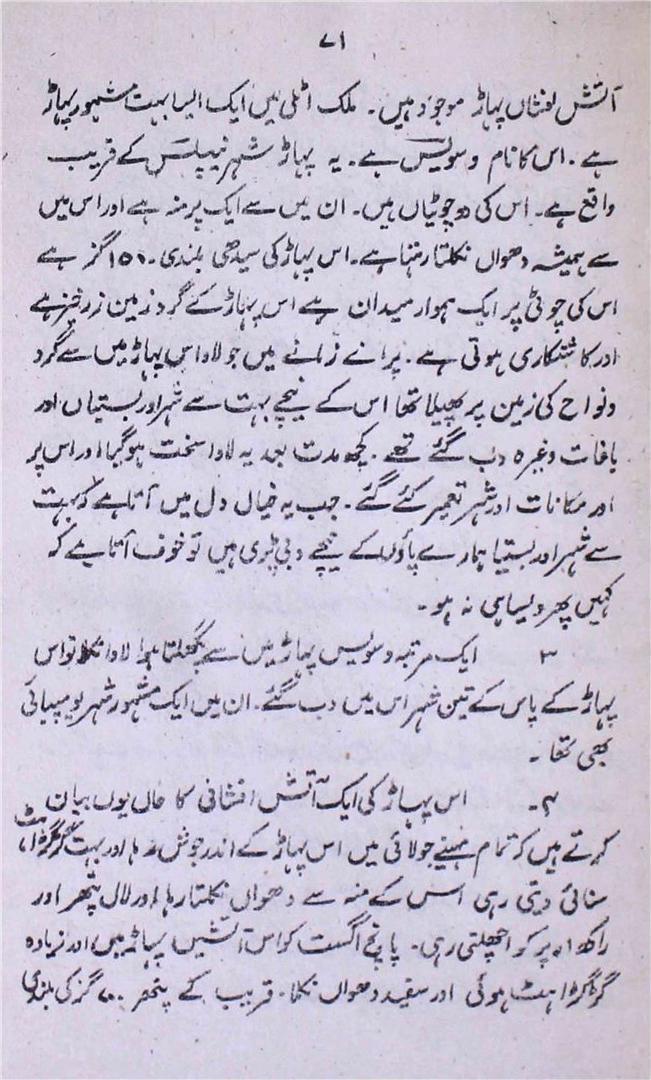 ۷۱
آتش فشاں پہاڑ موجود ہیں۔ ملک اٹلی میں ایک ایسا بہت مشہور پہاڑ
ہے۔ اس کا نام وسویس ہے۔ یہ پہاڑ شہر نیپلس کے قریب
واقع ہے۔ اس کی دو چوٹیاں ہیں۔ ان میں سے ایک پر منہ ہے اور اس میں
سے ہمیشہ دھواں نکلتا رہتا ہے۔ اس پہاڑ کی سیدھی بلندی ۱۵۰۰ گز ہے
اس کی چوٹی پر ایک ہموار میدان ہے اس پہاڑ کے گرد زمین زرخیز ہے
اور کاشتکاری ہوتی ہے۔ پرانے زمانے میں جو لاوا اس پہاڑ میں سے گرد
و نواح کی زمین پر پھیلا تھا اس کے نیچے بہت سے شہر اور بستیاں اور
باغات وغیرہ دب گئے تھے۔ کچھ مدت بعد یہ لاوا سخت ہو گیا اور اس پر
اور مکانات اور شہر تعمیر کئے گئے۔ جب یہ خیال دل میں آتا ہے کہ بہت
سے شہر اور بستیا ہمارے پاؤں کے نیچے دبی پڑی ہیں تو خوف آتا ہے کہ
کہیں پھر ویسا ہی نہ ہو۔
۳ ایک مرتبہ وسویس پہاڑ میں سے پگھلتا ہوا لاوا نکلا تو اس
پہاڑ کے پاس کے تین شہر اس میں دب گئے۔ ان میں ایک مشہور شہر پومپیائی
بھی تھا۔
۴۔ اس پہاڑ کی ایک آتش افشانی کا حال یوں بیان
کرتے ہیں کہ تمام مہینے جولائی میں اس پہاڑ کے اندر جوش رہا اور بہت گڑگڑاہٹ
سنائی دیتی رہی اس کے منہ سے دھواں نکلتا رہا اور لال پتھر اور
راکھ اوپر کو اچھلتی رہی۔ پانچ اگست کو اس آتشیں پہاڑ میں اور زیادہ
گڑگڑاہٹ ہوئی اور سفید دھواں نکلا۔ قریب کے پتھر گز کی بلندی